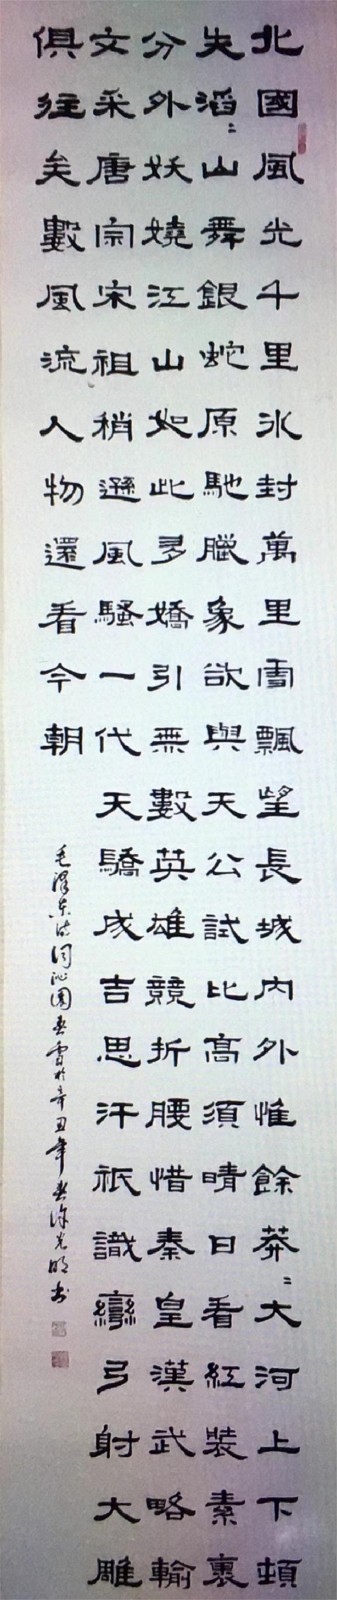 北國風光千里冰封萬里雪飄望長城内外惟餘莽〻大河上下頓
失滔〻山舞銀蛇原馳臘象欲與天公試比高須晴日看紅裝素裹
分外妖嬈江山如此多嬌引無數英雄競折腰惜秦皇漢武略輸
文采唐宗宋祖稍遜風騷一代天驕成吉思汗祇識彎弓射大雕
俱往矣數風流人物還看今朝
毛澤东诗词沁園春雪於辛丑年春徐光明书